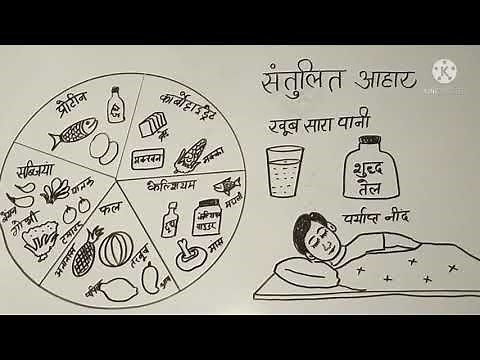 संतुलित आहार
खूब सारा पानी
शुद्ध
तेल
पर्याप्त नींद
प्रोटीन
कार्बोहाइड्रेट
मक्खन
मक्का
सब्जियां
पालक
गोभी
टमाटर
फल
अनानास
तरबूज
आम
कैल्शियम
दूध
मछली
मांस